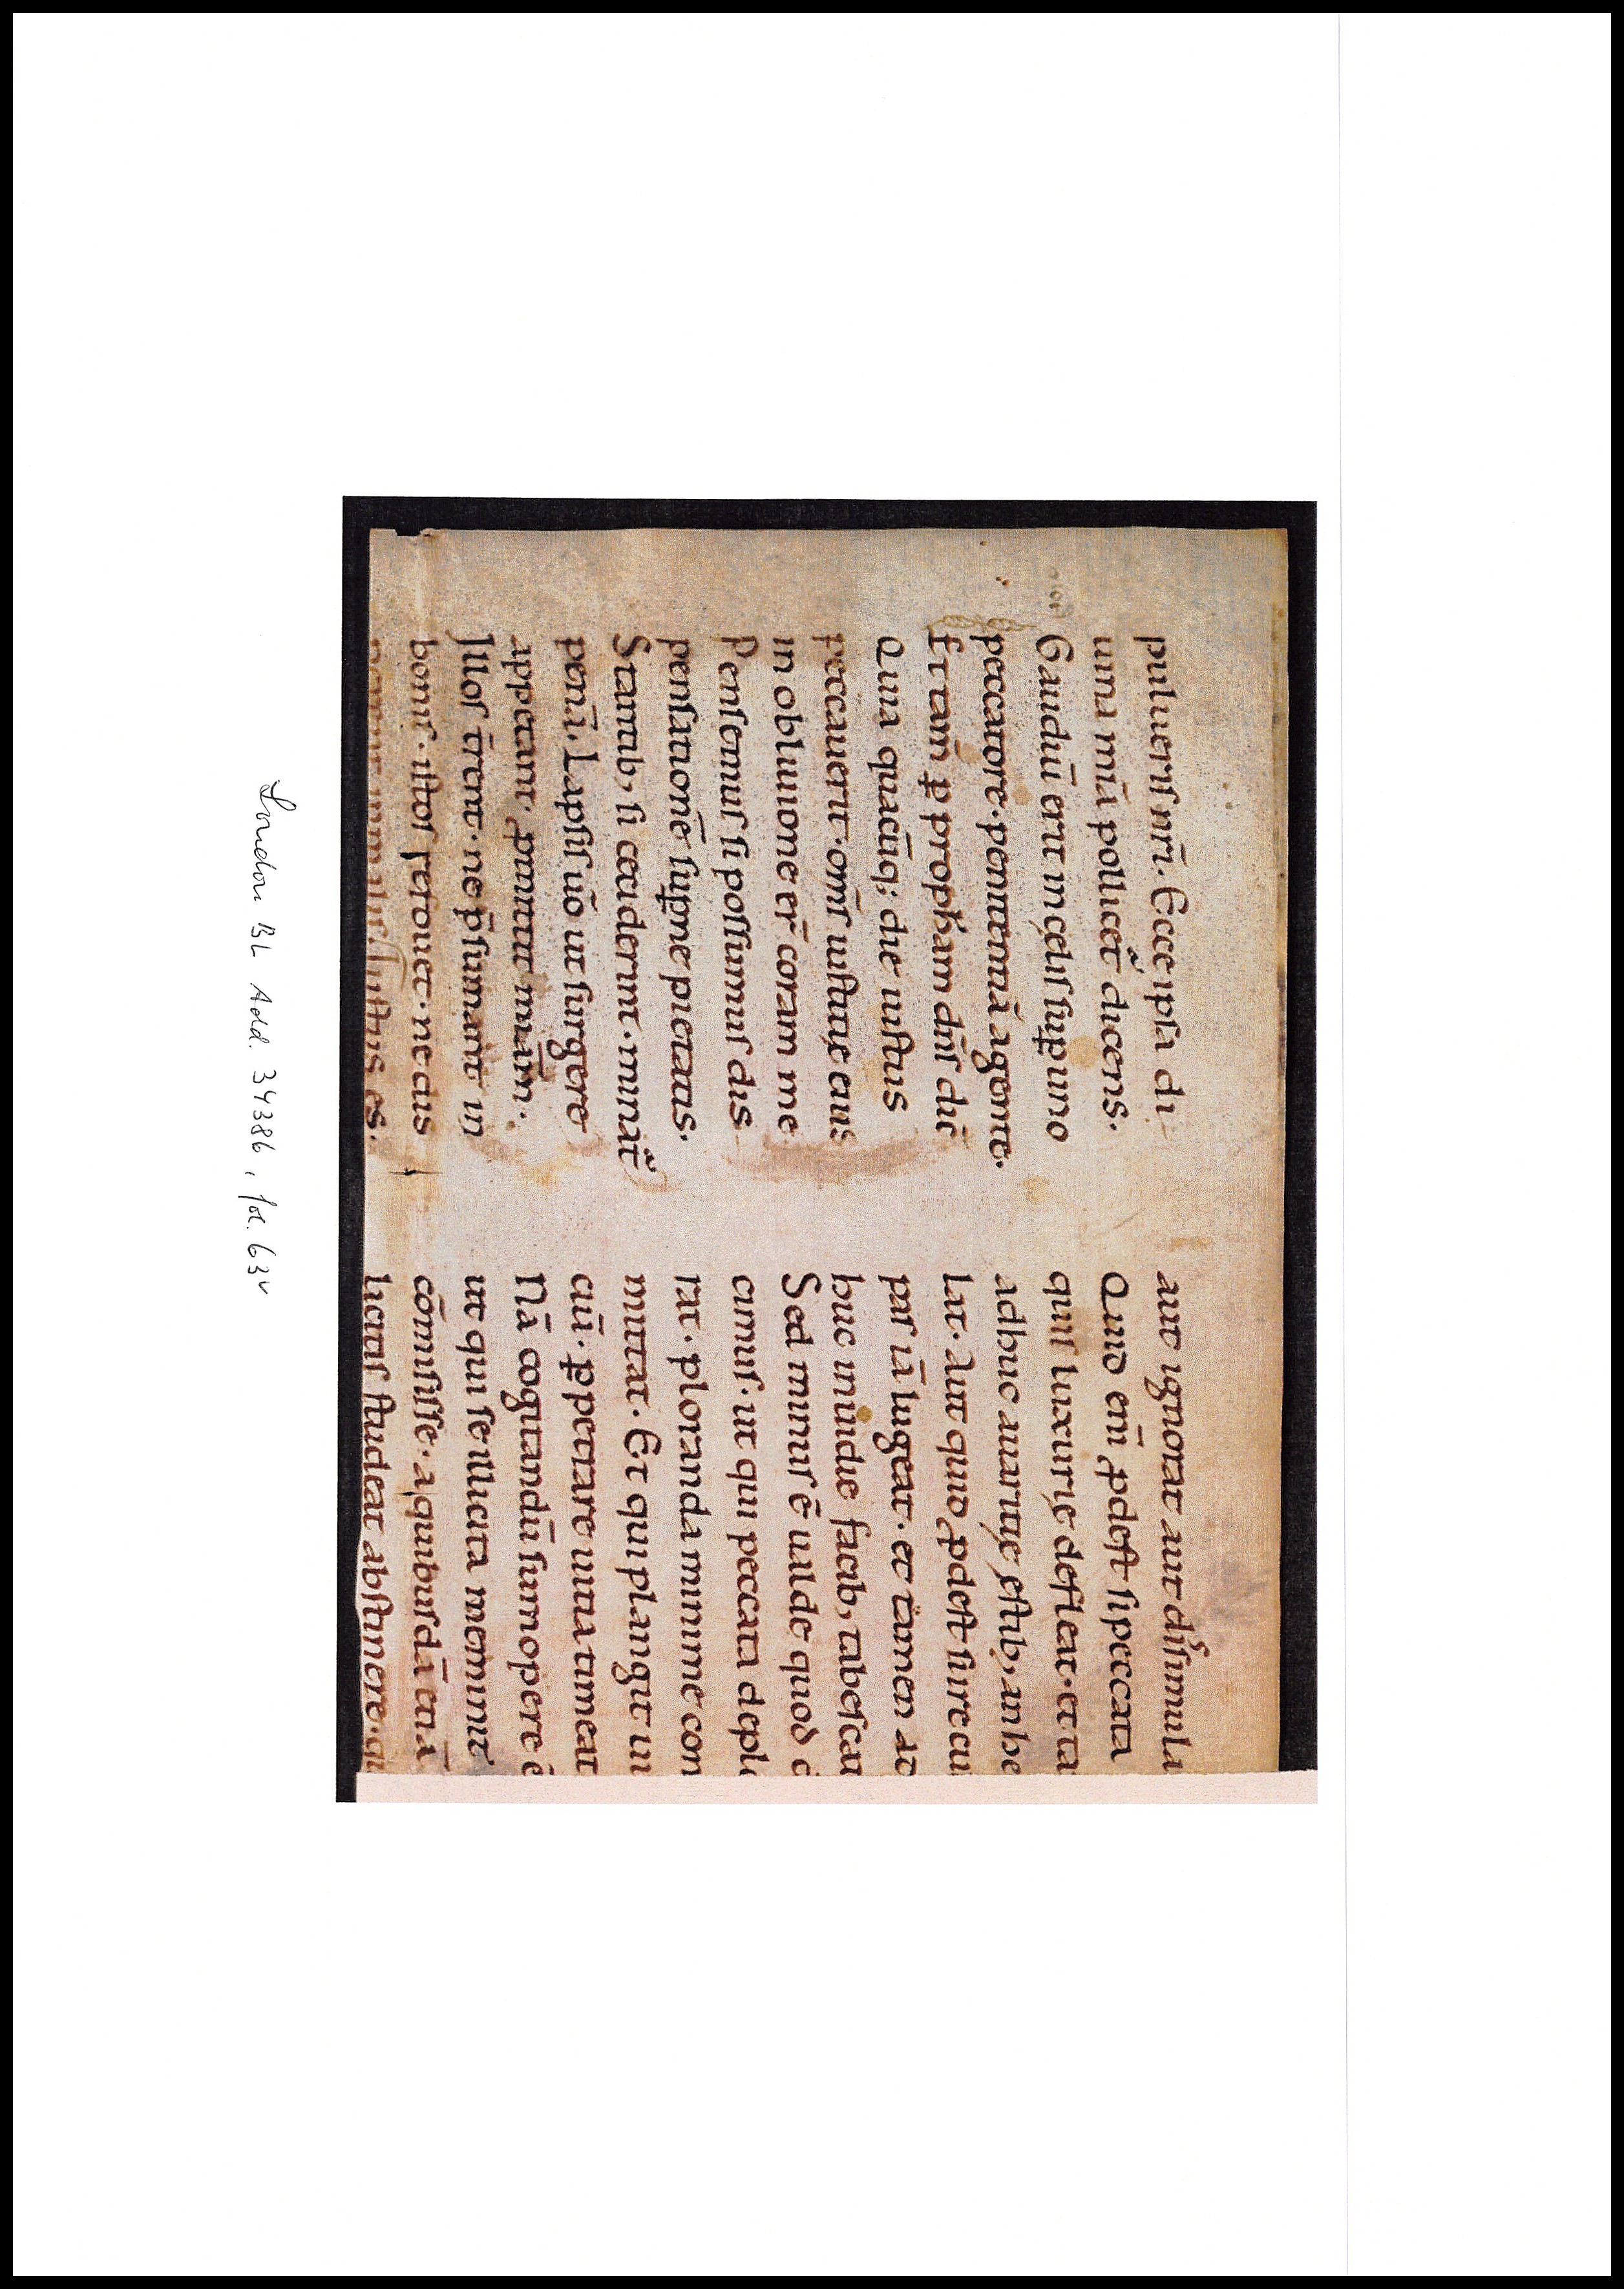 pulueris nr̄i. Ecce ipsa di
uina mīa pollicet̄ dicens.
Gaudiū erit in cęlis sup̱ uno
peccatore. penitentiā agente.
Et tam̄ p̱ prophetam dn̄s dic̄
Quia quacūq; die iustus
peccauerit. om̄s iustitię eius
in obliuione er̄ coram me
Pensemus si possumus dis
pensationē sup̱nę pietatis.
Stantib; si ceciderint. minat̄
penā. Lapsis u̅o ut surgere
appetant. p̄mittit mīam.
Illos t̄rent. ne p̄sumant in
bonis. istos refouet. ne dis
Iustus es.
aut ignorat aut dissimula
Quid enī p̄dest si peccata
quis luxurię defleat. et ta
adhuc auaritię ęstib; anhe
lat. Aut quid p̄dest si irę cu
pas iā lugeat. et tamen ad
huc inuidię facib; tabescat
Sed minus ē ualde quod d
cimus. ut qui peccata depl
rat. ploranda minime com
mittat. Et qui plangit ui
ciū. p̱petrare uitia timeat
Nā cogitandū summopere ē
ut qui se illicita meminit
cōmisisse. a quibusdā etiā
licitis studeat abstinere. qu
London BL Add. 34386, fol. 63v